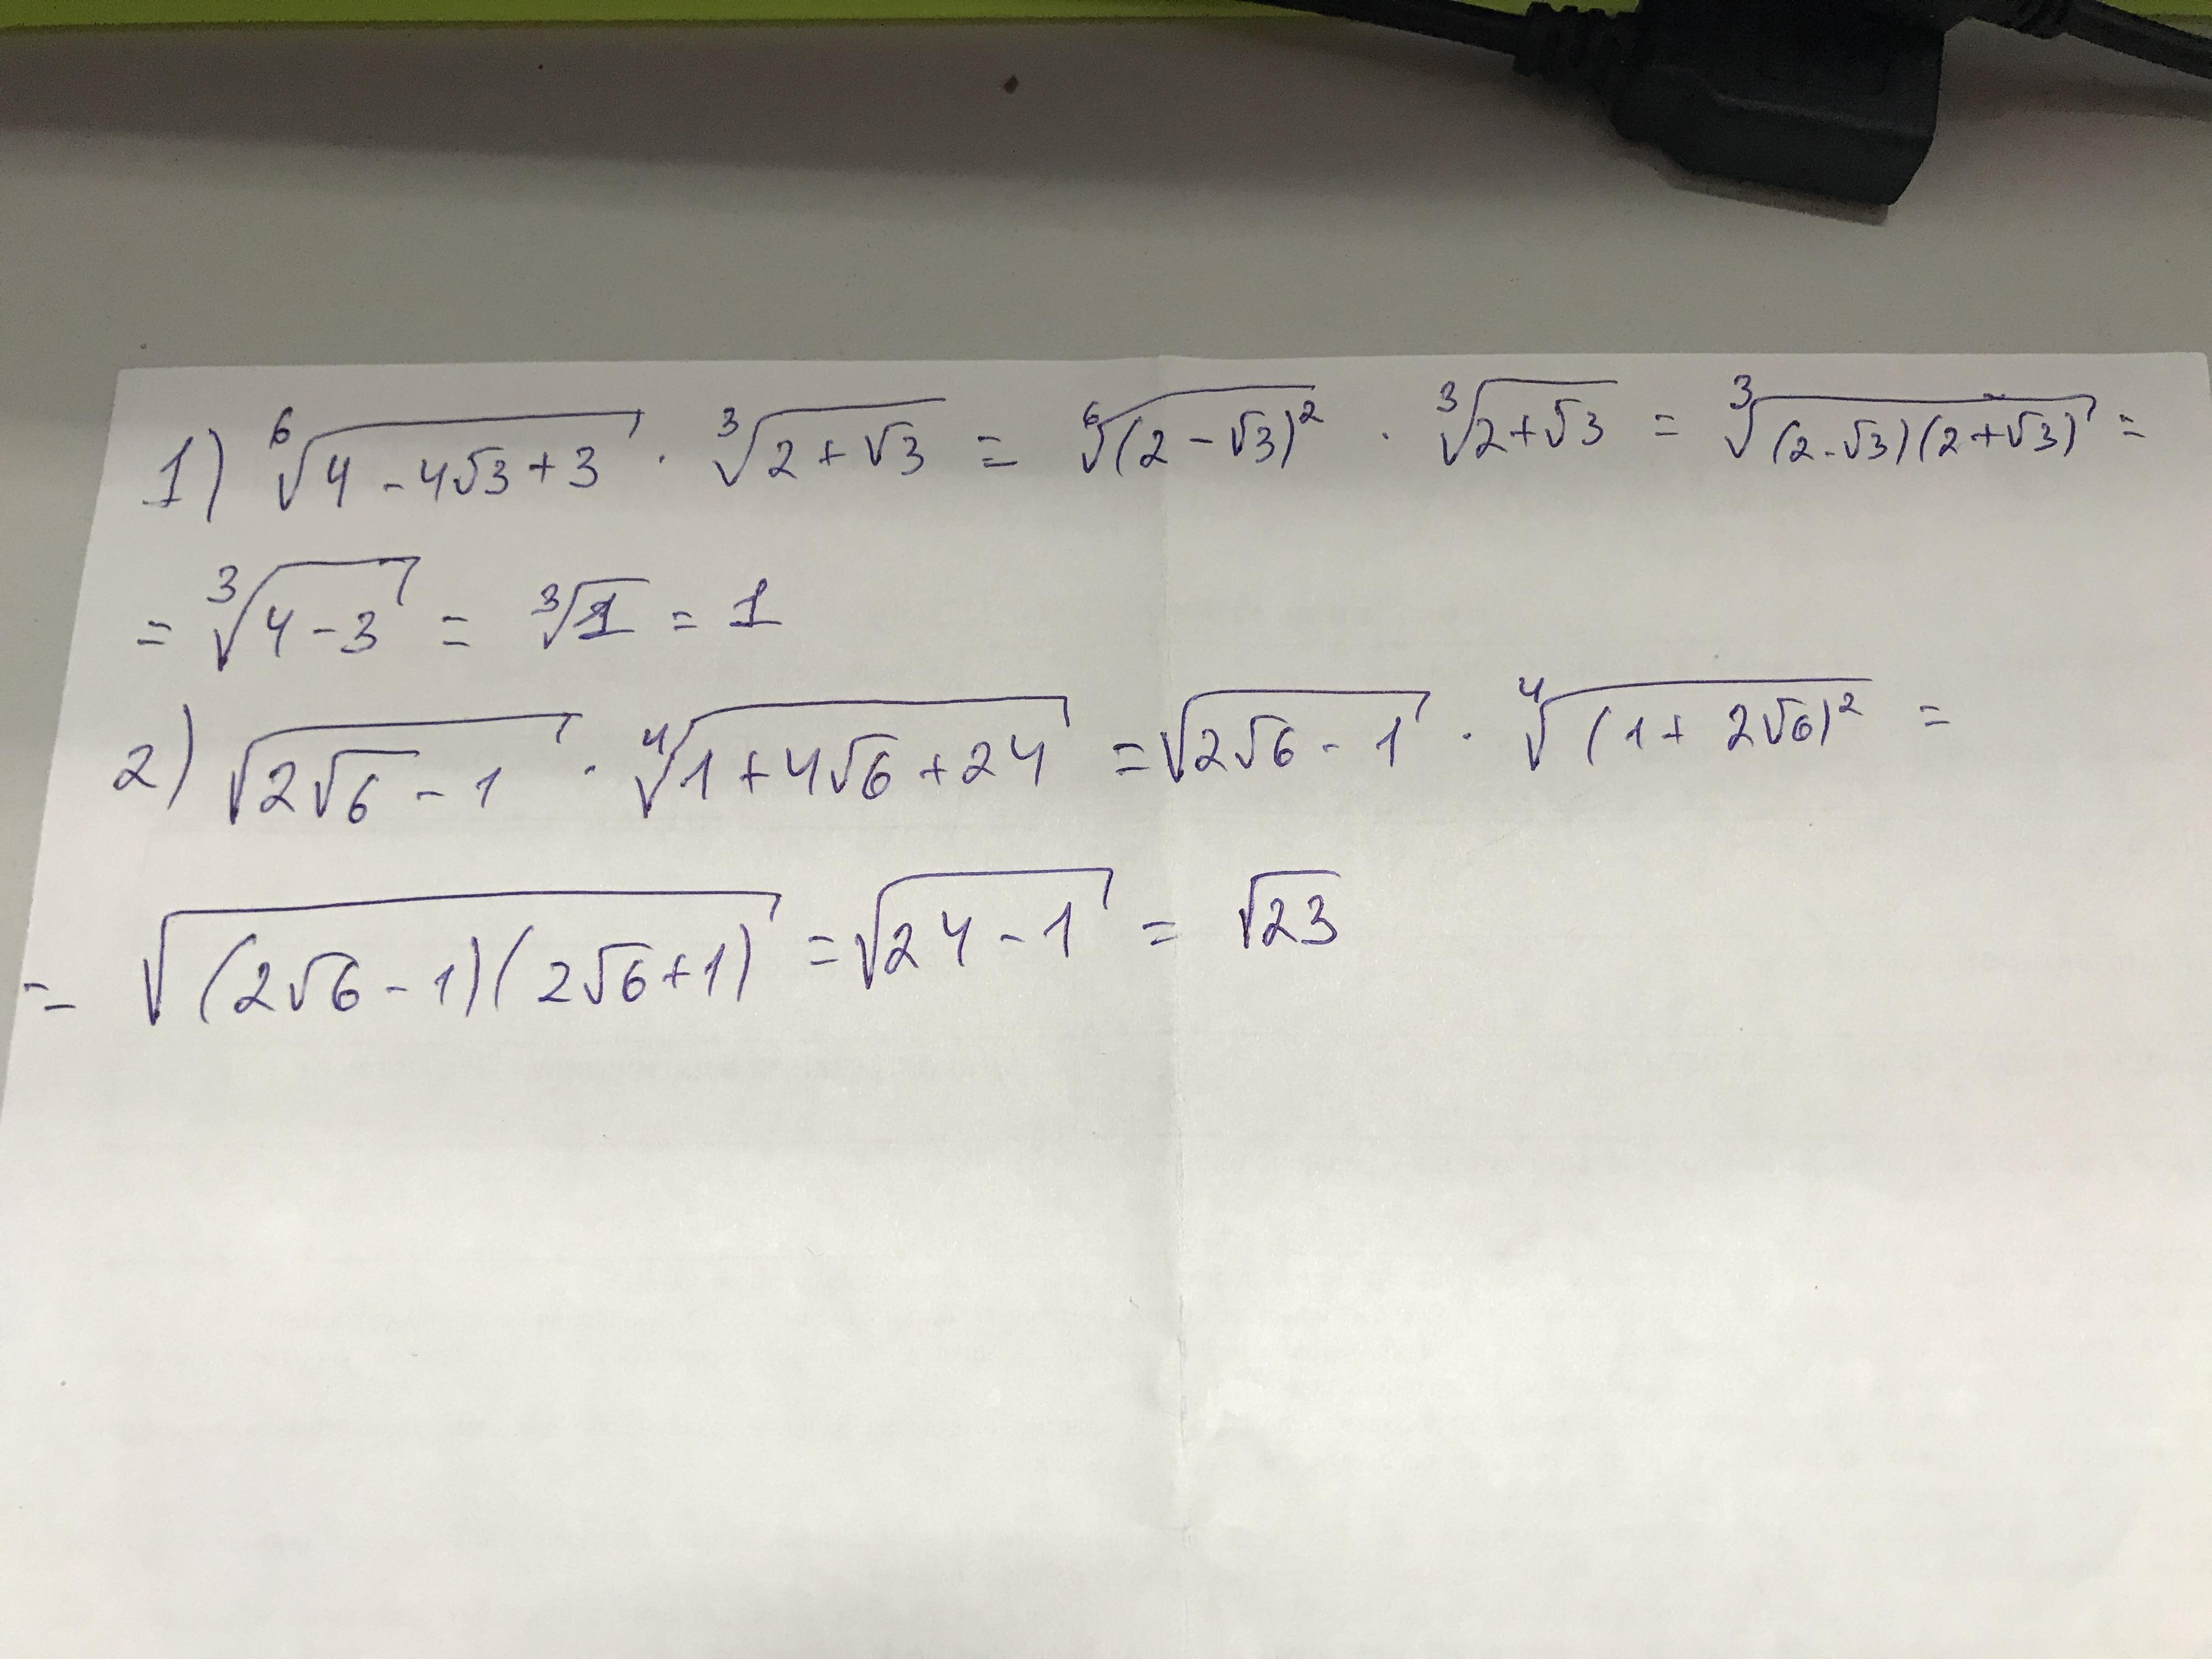 1) ⁶√(4 - 4√3 + 3) · ³√(2 + √3) = ⁶√((2 - √3)²) · ³√(2 + √3) = ³√((2 - √3)(2 + √3)) =
= ³√(4 - 3) = ³√1 = 1
2) √(2√6 - 1) · ⁴√(1 + 4√6 + 24) = √(2√6 - 1) · ⁴√((1 + 2√6)²) =
= √((2√6 - 1)(2√6 + 1)) = √(24 - 1) = √23